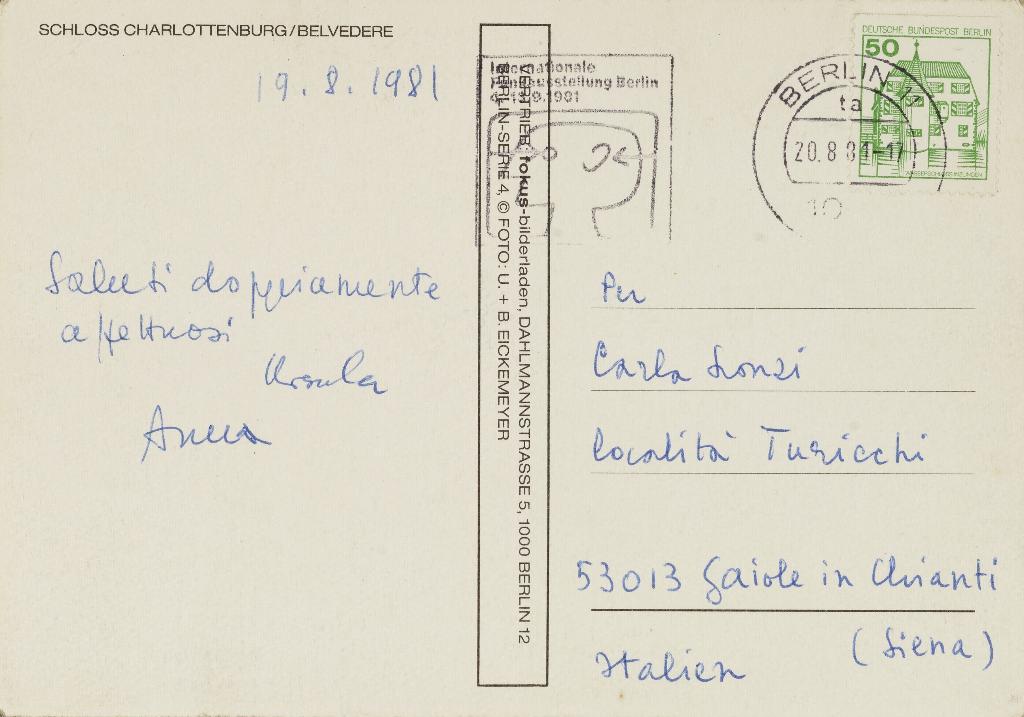 SCHLOSS CHARLOTTENBURG/BELVEDERE
19.8.1981
Saluti doppiamente
affettuosi
Ursula
Anna
VERTRIEB: fokus-bilderladen, DAHLMANNSTRASSE 5, 1000 BERLIN 12
BERLIN-SERIE 4, © FOTO: U. + B. EICKEMEYER
Internationale
Funkausstellung Berlin
9.1981
BERLIN 11
ta
20.8.81-17
10
DEUTSCHE BUNDESPOST BERLIN
50
WASSERSCHLOSS INZLINGEN
Per
Carla Lonzi
località Turicchi
53013 Gaiole in Chianti
(Siena)
Italien